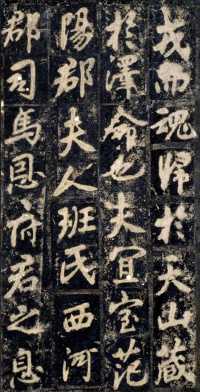 戎而魂歸於天山藏
於澤命也夫宜室范
陽郡夫人班氏西河
郡司馬恩府君之息